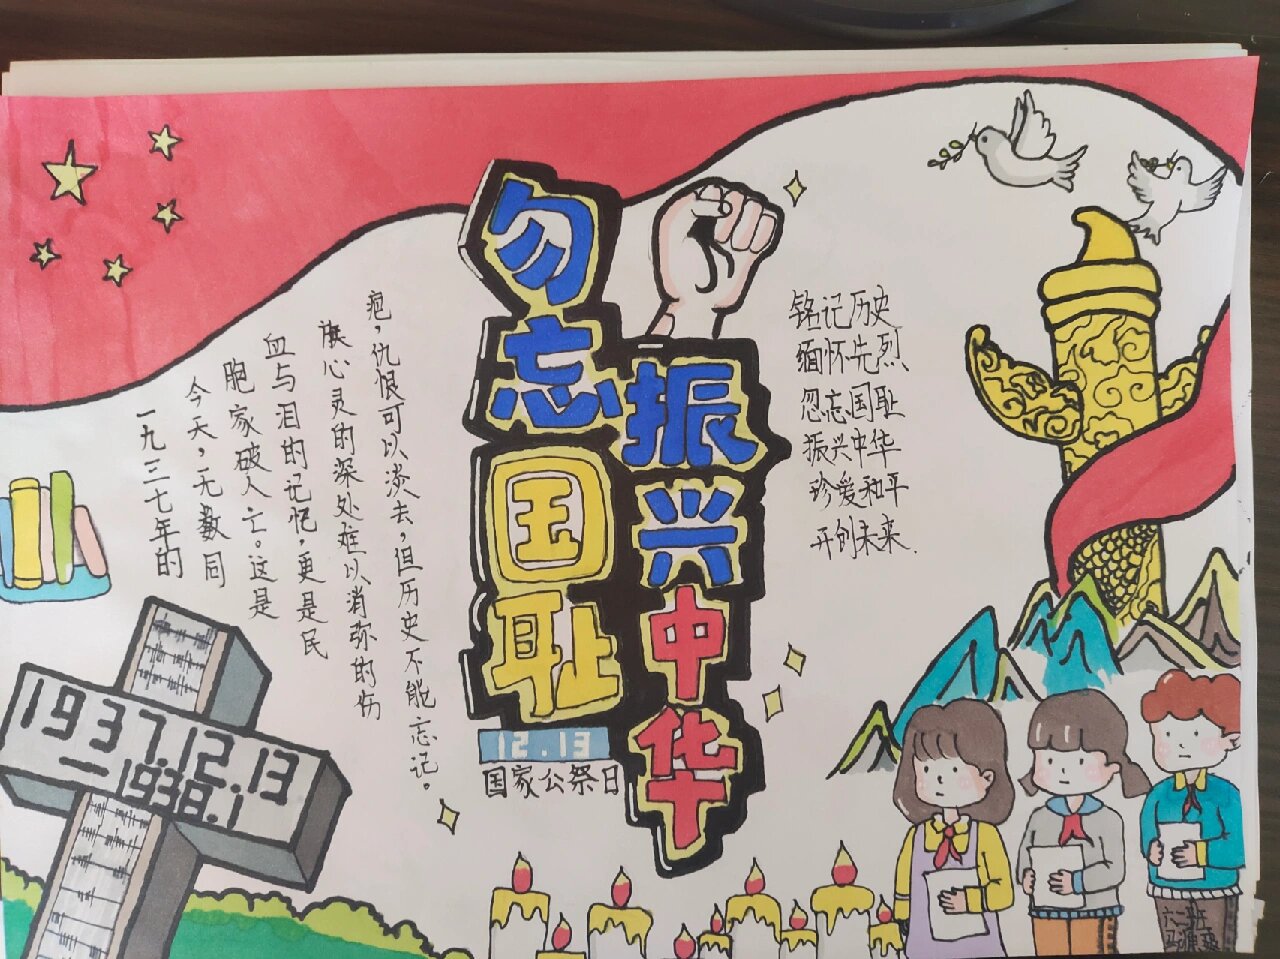 勿忘国耻
振兴中华
12.13
国家公祭日
一九三七年的
今天，无数同
胞家破人亡。这是
血与泪的记忆，更是民
族心灵的深处难以消弥的伤
疤，仇恨可以淡去，但历史不能忘记。
铭记历史
缅怀先烈
忽忘国耻
振兴中华
珍爱和平
开创未来.
1937.12.13
—1938.1
六一班